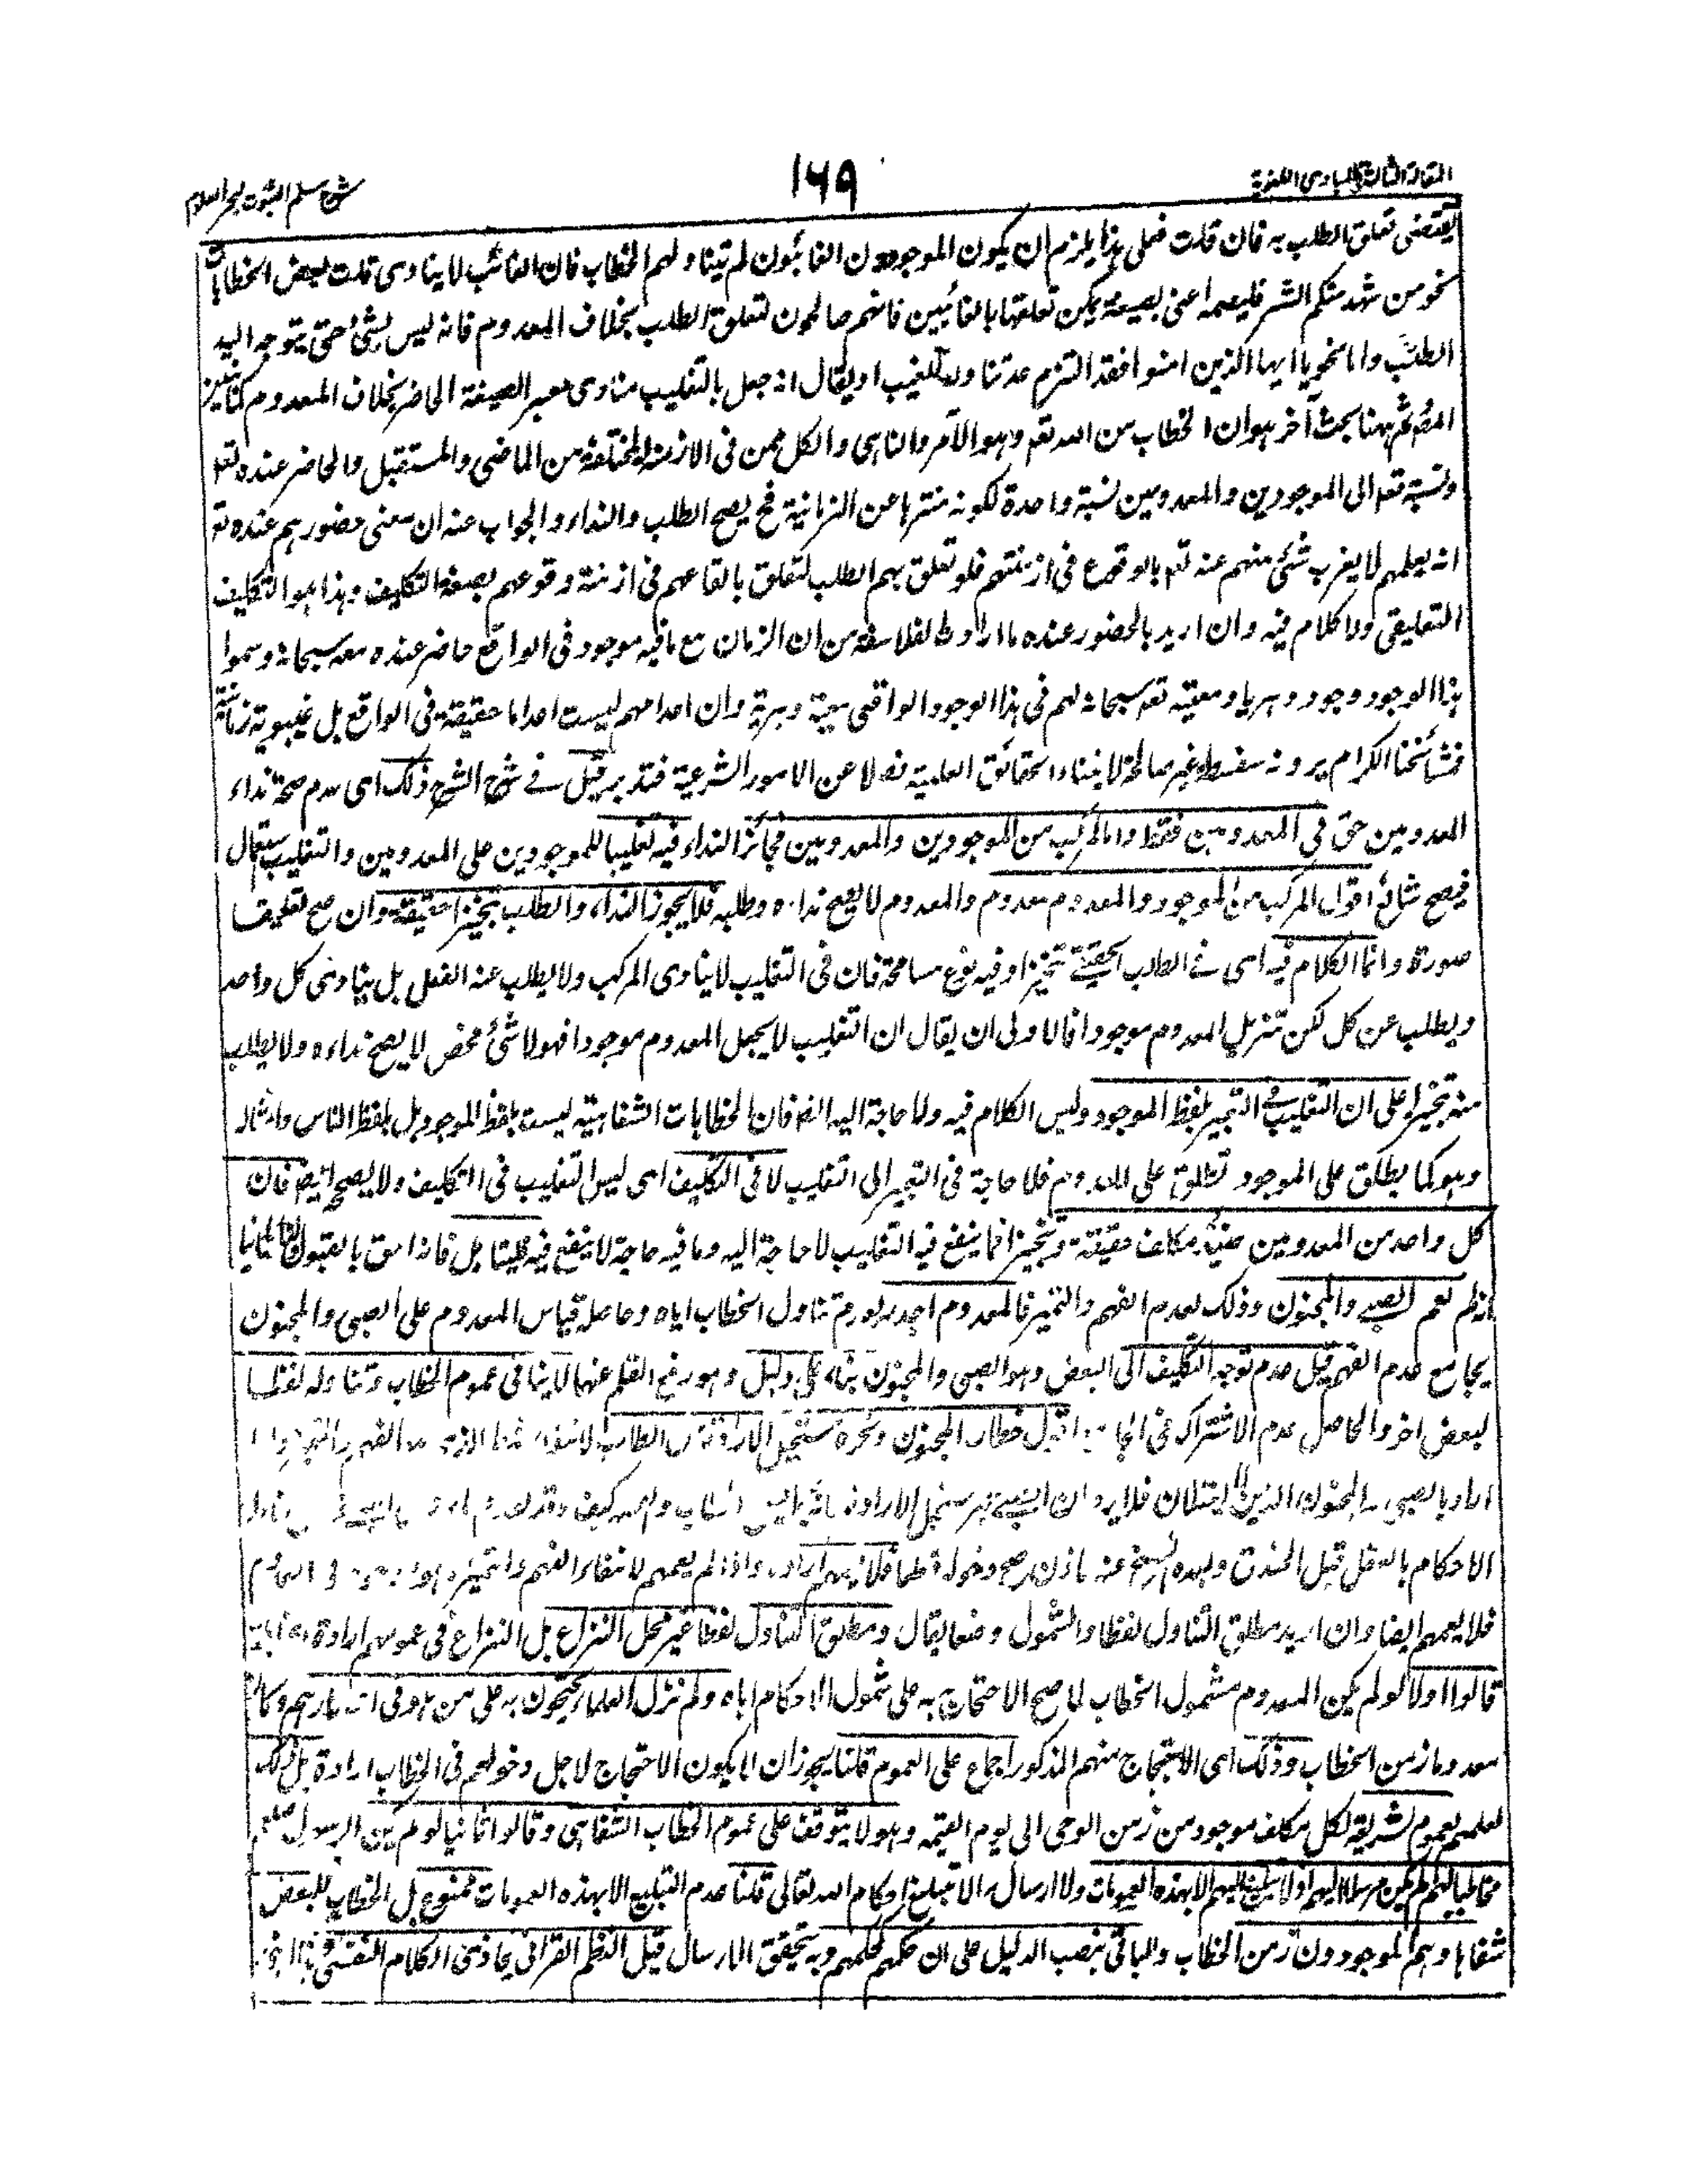 المقالة الثالثة فى المبادى اللغوية
١٦٩
شرح مسلم الثبوت لبحر العلوم
يقتضى تعلق الطلب به فان قلت فعلى هذا يلزم ان يكون الموجودون الغائبون لم يتناولهم الخطاب فان الغائب لا ينادى قلت بعض الخطابات
نحو من شهد منكم الشهر فليصمه اعنى بصيغة يمكن تعلقها بالغائبين فانهم صالحون لتعلق الطلب بخلاف المعدوم فانه ليس بشئ حتى يتوجه اليه
الطلب واما نحو يا ايها الذين امنوا فقد التزم عدم تناوله للغيب او يقال انه جعل بالتغليب منادى معبر الصيغة الحاضر بخلاف المعدوم
ثم ههنا بحث آخر هو ان الخطاب من الله تعالى وهو الآمر والناهى والكل ممن فى الازمنة المختلفة من الماضى والمستقبل والحاضر عنده تعالى
ونسبته تعالى الى الموجودين والمعدومين نسبة واحدة لكونه منزها عن الزمانية فح يصح الطلب والنداء والجواب عنه ان معنى حضورهم عنده تعالى
انه يعلمهم لا يغرب شئ منهم عنه تعالى بالوقوع فى ازمنتهم فلو تعلق بهم الطلب لتعلق بايقاعهم فى ازمنة وقوعهم بصفة التكليف وهذا هو التكليف
التعليقى ولا كلام فيه وان اريد بالحضور عنده ما اراد الفلاسفة من ان الزمان مع ما فيه موجود فى الواقع حاضر عنده معه سبحانه وسموا
هذا الوجود وجود دهريا ومعيته تعالى سبحانه لهم فى هذا الوجود الواقعى معية دهرية وان اعدامهم ليست اعداما حقيقة فى الواقع بل غيبوبة زمانية
فمشائخنا الكرام يرونه سفسطة غير صالحة لابتناء الحقائق العلمية فضلا عن الامور الشرعية فتدبر قيل فى شرح الشرح ذلك اى عدم صحة نداء
المعدومين حق فى المعدومين فقط واما المركب من الموجودين والمعدومين فجائز النداء فيه تغليبا للموجودين على المعدومين والتغليب استعمال
فصيح شائع اقول المركب من الموجود والمعدوم معدوم والمعدوم لا يصح نداءه وطلبه فلا يجوز النداء والطلب تنجيزا حقيقة وان صح تعليقا
صورة وانما الكلام فيه اى فى الطلب الحقيقى تنجيزا وفيه نوع مسامحة فان فى التغليب لا ينادى المركب ولا يطلب عنه الفعل بل ينادى كل واحد
ويطلب عن كل لكن تنزيل المعدوم موجودا فالاولى ان يقال ان التغليب لا يجعل المعدوم موجودا فهو لا شئ محض لا يصح نداءه ولا يطلب
منه تنجيزا على ان التغليب فى التعبير بلفظ الموجود وليس الكلام فيه ولا حاجة اليه ايضا فان الخطابات الشفاهية ليست بلفظ الموجود بل بلفظ الناس وامثاله
وهو كما يطلق على الموجود تطلق على المعدوم فلا حاجة فى التعبير الى التغليب لا فى التكليف اى ليس التغليب فى التكليف ولا يصح ايضا فان
كل واحد من المعدومين مكلف حقيقة وتنجيزا فما ينفع فيه التغليب لا حاجة اليه وما فيه حاجة لا ينفع فيه فليتامل فانه احق بالقبول ولنا ثانيا
انه لم يعم الصبى والمجنون وذلك لعدم الفهم والتميز فالمعدوم اجدر لعدم تناول الخطاب اياه وحاصله قياس المعدوم على الصبى والمجنون
بجامع عدم الفهم قيل عدم توجه التكليف الى البعض وهو الصبى والمجنون بناء على دليل وهو رفع القلم عنهما لا ينافى عموم الخطاب وتناوله لفظا
لبعض اخر والحاصل عدم الاشتراك فى الجامع اقول خطاب المجنون ونحوه مستحيل الارادة
اراد بالصبى والمجنون الذين لا يعقلان فلا يرد ان الصبى غير مستحيل الارادة
الاحكام بالعقل قبل الخندق وبعده نسخ عنه
فلا يعمهم ايضا وان اريد مطلق التناول لفظا والشمول وضعا يقال ومطلق التناول لفظا غير محل النزاع بل النزاع فى عمومهم ارادة
قالوا اولا لو لم يكن المعدوم مشمول الخطاب لما صح الاحتجاج به على شمول الاحكام اياه ولم تزل العلماء يحتجون به على من هو فى
معدوما زمن الخطاب وذلك اى الاحتجاج منهم المذكور اجماع على العموم قلنا يجوز ان لا يكون الاحتجاج لاجل دخولهم فى الخطاب ارادة بل ذلك
لعلمهم بعموم الشريعة لكل مكلف موجود من زمن الوحى الى يوم القيمة وهو لا يتوقف على عموم الخطاب الشفاهى وقالوا ثانيا لو لم يكن الرسول صلعم
مخاطبا لهم لم يكن مرسلا اليهم اذ لا تبليغ اليهم الا بهذه العمومات ولا ارسال الا بتبليغ احكام الله تعالى قلنا عدم التبليغ الا بهذه العمومات ممنوع بل الخطاب للبعض
شفاها وهم الموجودون زمن الخطاب والباقى بنصب الدليل على ان حكمهم كحكمهم وبه يتحقق الارسال قيل النظم القرانى يحاذى الكلام النفسى